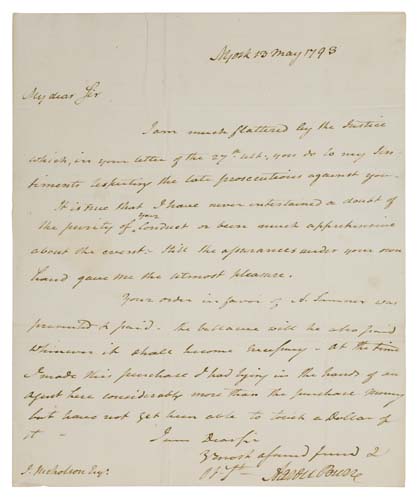 NYork 13 May 1793
My dear Sir
I am much flattered by the Justice
which, in your letter of the 27th ult., you do to my Sen-
timents respecting the late prosecutions against you.
It is true that I have never entertained a doubt of
the purity of your Conduct or been much apprehensive
about the event; still the assurances under your own
hand gave me the utmost pleasure.
Your order in favor of A. Sumner was
presented & paid. the ballance will be also paid
whenever it shall become necessary - At the time
I made this purchase I had lying in the hands of an
agent here considerably more than the purchase Money
but have not yet been able to touch a Dollar of
it -
I am Dear Sir
Yr most affend friend &
Ob. St
Aaron Burr
J. Nicholson Esqr.